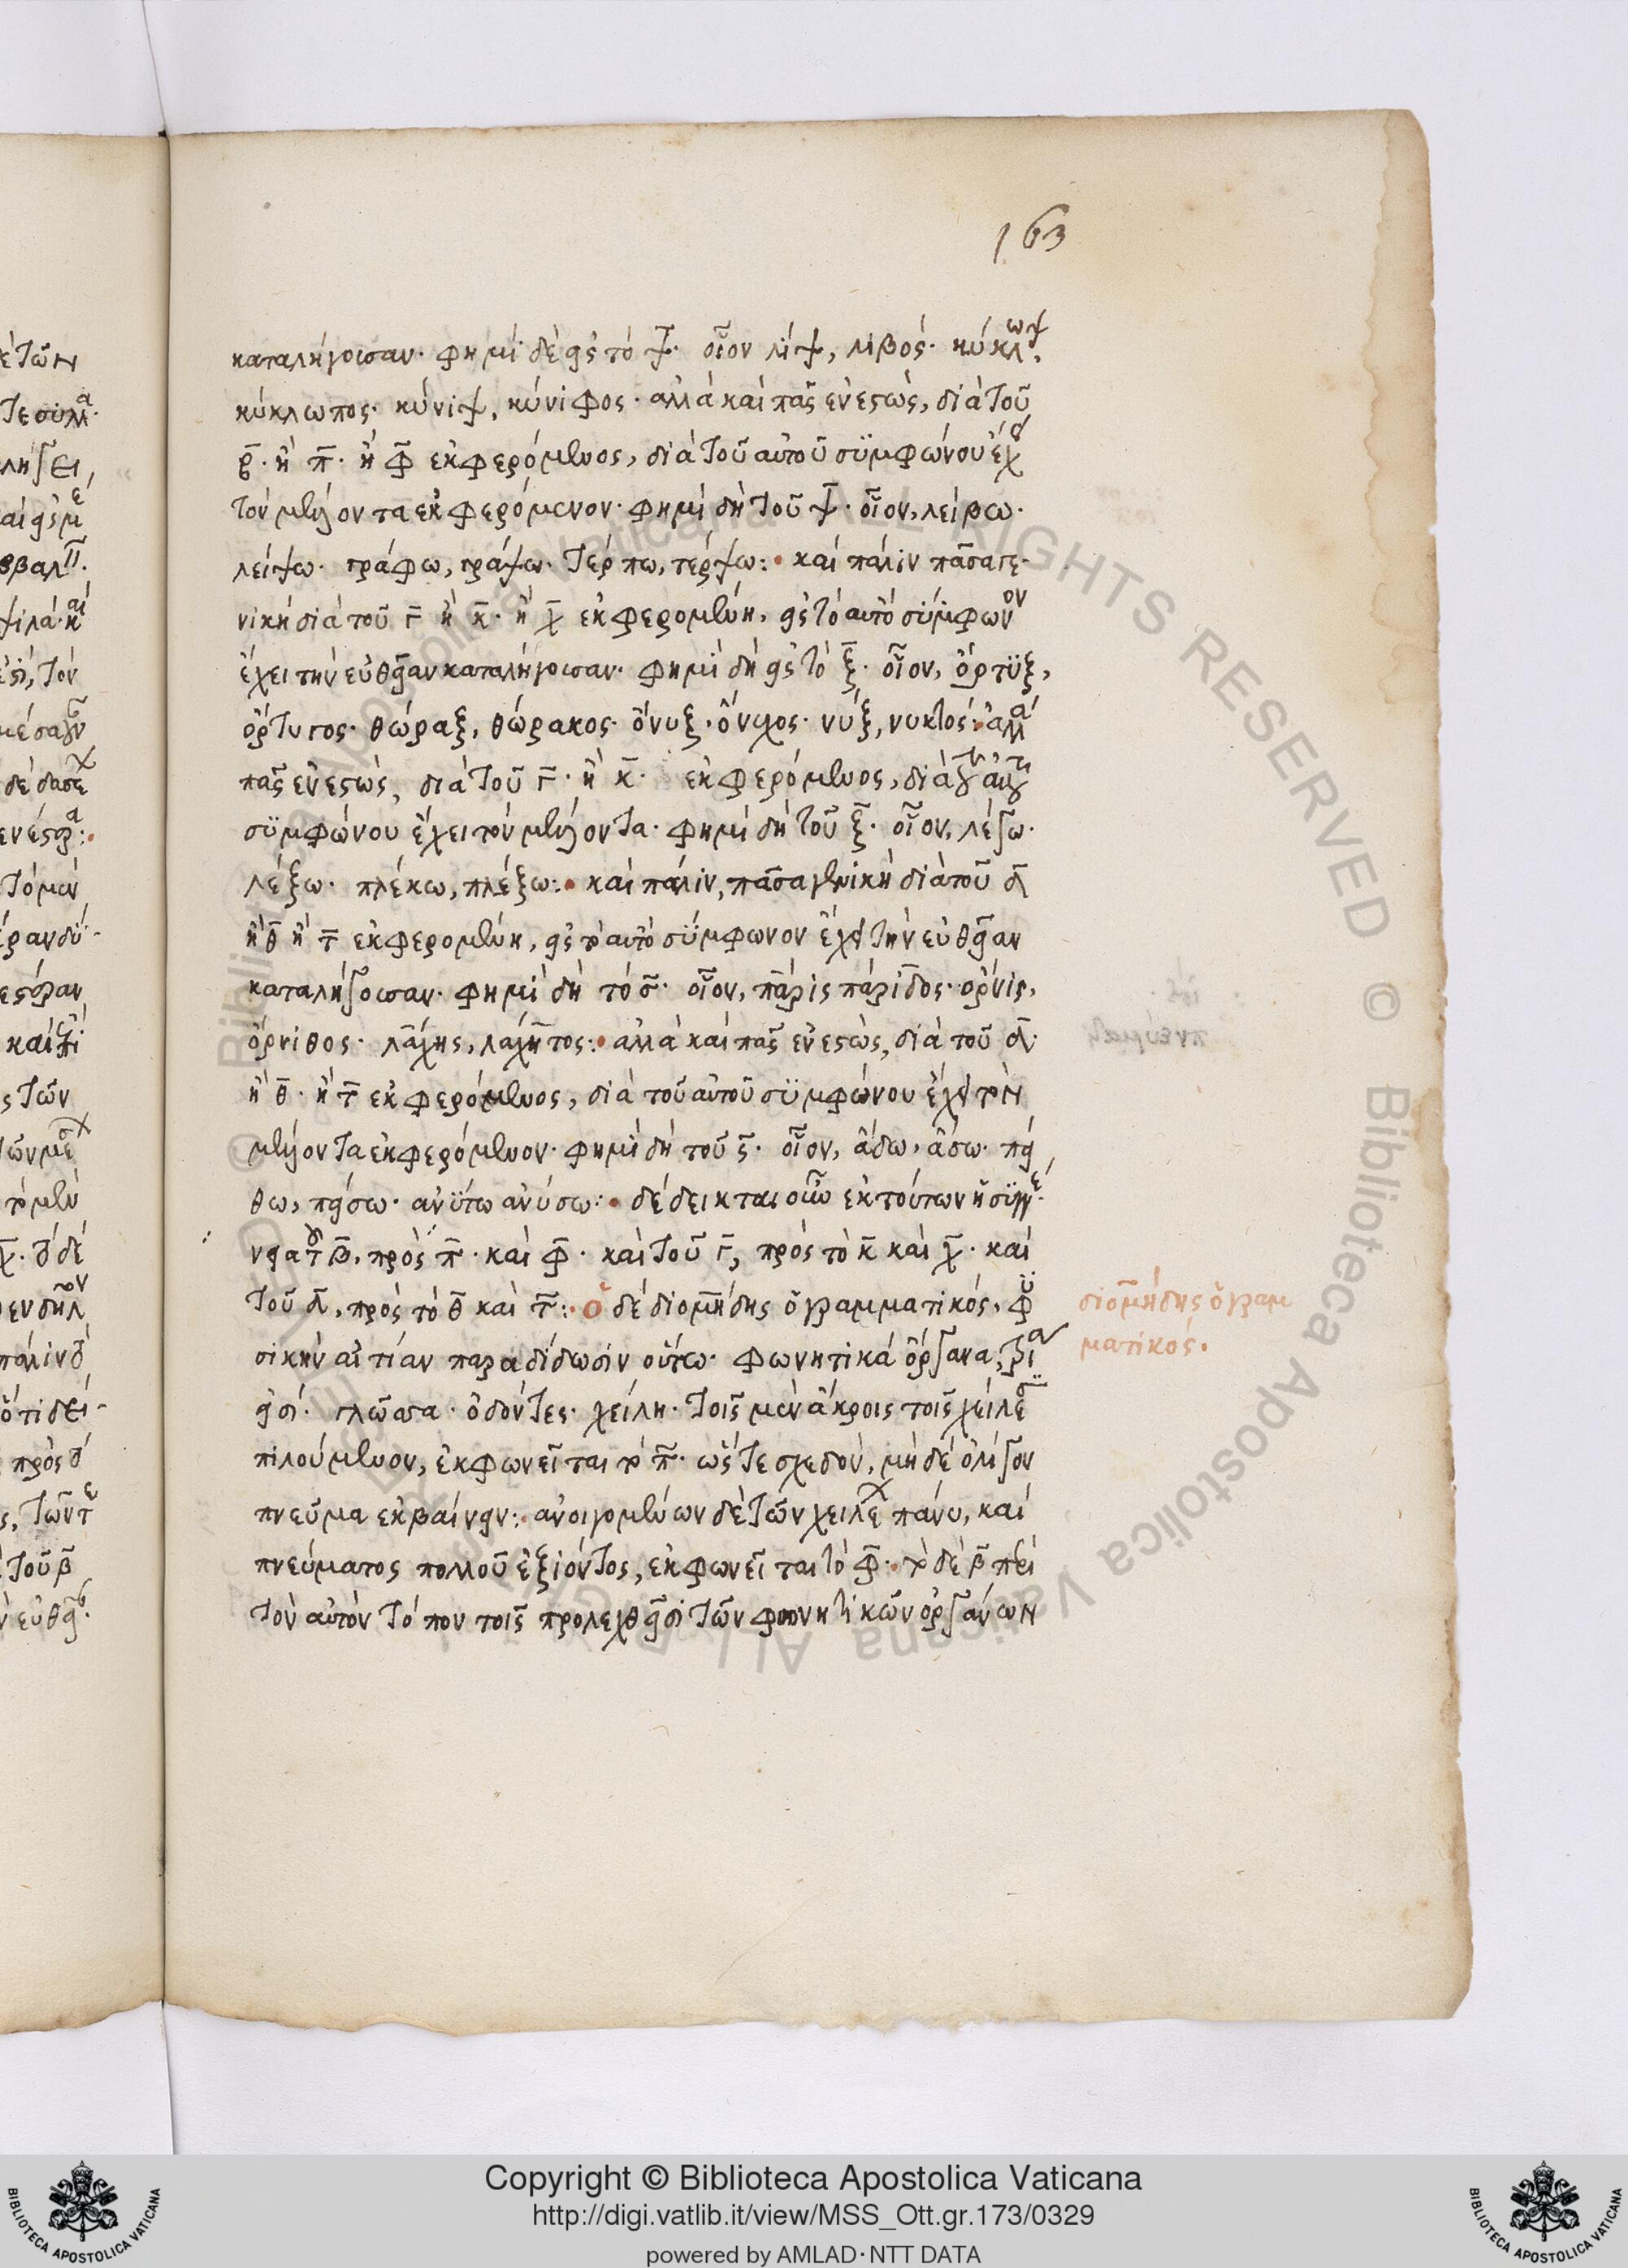 163
καταλήγουσαν· φημὶ δὲ εἰς τὸ ψ̄· οἷον λίψ, λιβός· κύκλωψ,
κύκλωπος· κύνιψ, κύνιφος· ἀλλὰ καὶ πᾶς ἐνεστὼς, διὰ τοῦ
β̄· ἢ π̄· ἢ φ̄ ἐκφερόμενος, διὰ τοῦ αὐτοῦ συμφώνου ἔχει
τὸν μέλλοντα ἐκφερόμενον· φημὶ δὴ τοῦ ψ̄· οἷον, λείβω·
λείψω· γράφω, γράψω· τέρπω, τέρψω: καὶ πάλιν πᾶσα γε-
νικὴ διὰ τοῦ γ̄ ἢ κ̄· ἢ χ̄ ἐκφερομένη, εἰς τὸ αὐτὸ σύμφωνον
ἔχει τὴν εὐθεῖαν καταλήγουσαν· φημὶ δὴ εἰς τὸ ξ̄· οἷον, ὄρτυξ,
ὄρτυγος· θώραξ, θώρακος· ὄνυξ· ὄνυχος· νύξ, νυκτός: ἀλλὰ
πᾶς ἐνεστὼς, διὰ τοῦ γ̄· ἢ κ̄· ἐκφερόμενος, διὰ τοῦ αὐτοῦ
συμφώνου ἔχει τὸν μέλλοντα· φημὶ δὴ τοῦ ξ̄· οἷον, λέγω·
λέξω· πλέκω, πλέξω: καὶ πάλιν, πᾶσα γενικὴ διὰ τοῦ δ̄
ἢ θ̄ ἢ τ̄ ἐκφερομένη, εἰς τὸ αὐτὸ σύμφωνον ἔχει τὴν εὐθεῖαν
καταλήγουσαν· φημὶ δὴ τὸ σ̄· οἷον, πάρις πάριδος· ὄρνις,
ὄρνιθος· λάχης, λάχητος: ἀλλὰ καὶ πᾶς ἐνεστὼς, διὰ τοῦ δ̄·
ἢ θ̄· ἢ τ̄ ἐκφερόμενος, διὰ τοῦ αὐτοῦ συμφώνου ἔχει τὸν
μέλλοντα ἐκφερόμενον· φημὶ δὴ τοῦ ς̄· οἷον, ἄδω, ἄσω· πεί
θω, πείσω· ἀνύτω ἀνύσω: δέδεικται οὖν ἐκ τούτων ἡ συγγέ·
νεια τοῦ β̄, πρὸς π̄· καὶ φ̄· καὶ τοῦ γ̄, πρὸς τὸ κ̄ καὶ χ̄· καὶ
τοῦ δ̄, πρὸς τὸ θ̄ καὶ τ̄: ὁ δὲ διομήδης ὁ γραμματικός, φυ
σικὴν αἰτίαν παραδίδωσιν οὕτω· φωνητικὰ ὄργανα, τρία
εἰσί· γλῶσσα· ὀδόντες· χείλη· τοῖς μὲν ἄκροις τοῖς χείλεσι
πιλούμενον, ἐκφωνεῖται τὸ π̄· ὥστε σχεδὸν, μὴ δὲ ὀλίγον
πνεῦμα ἐκβαίνειν: ἀνοιγομένων δὲ τῶν χειλέων πάνυ, καὶ
πνεύματος πολλοῦ ἐξιόντος, ἐκφωνεῖται τὸ φ̄· τὸ δὲ β̄ περὶ
τὸν αὐτὸν τόπον τοῖς προλεχθεῖσι τῶν φωνητικῶν ὀργάνων
διομήδης ὁ γραμ
ματικός.
Copyright © Biblioteca Apostolica Vaticana
http://digi.vatlib.it/view/MSS_Ott.gr.173/0329
powered by AMLAD·NTT DATA